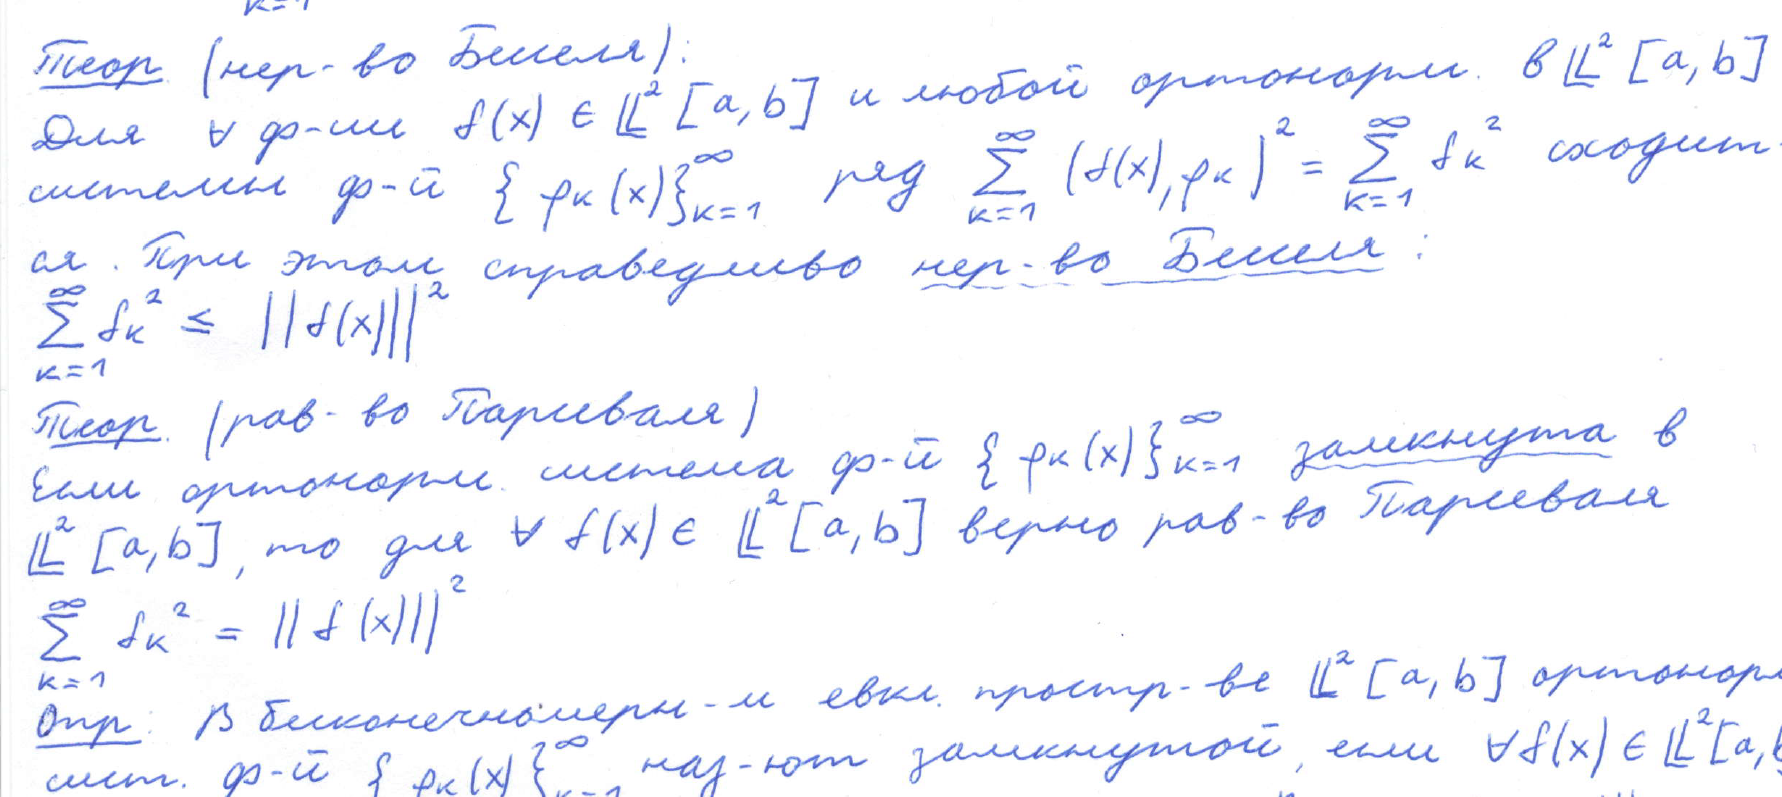 k=1
Теор. (нер-во Бесселя):
Для ∀ ф-ии f(x) ∈ 𝕃² [a,b] и любой ортонорм. в 𝕃² [a,b]
системы ф-й {φₖ(x)}_{k=1}^∞ ряд ∑_{k=1}^∞ (f(x),φₖ)² = ∑_{k=1}^∞ fₖ² сходит-
ся. При этом справедливо нер-во Бесселя:
∑_{k=1}^∞ fₖ² ≤ ||f(x)||²
Теор. (рав-во Парсеваля)
Если ортонорм. система ф-й {φₖ(x)}_{k=1}^∞ замкнута в
𝕃² [a,b], то для ∀ f(x) ∈ 𝕃² [a,b] верно рав-во Парсеваля
∑_{k=1}^∞ fₖ² = ||f(x)||²
Опр: В бесконечномерн-м евкл. простр-ве 𝕃² [a,b] ортонорм
сист. ф-й {φₖ(x)}_{k=1}^∞ наз-ют замкнутой, если ∀f(x) ∈ 𝕃² [a,b